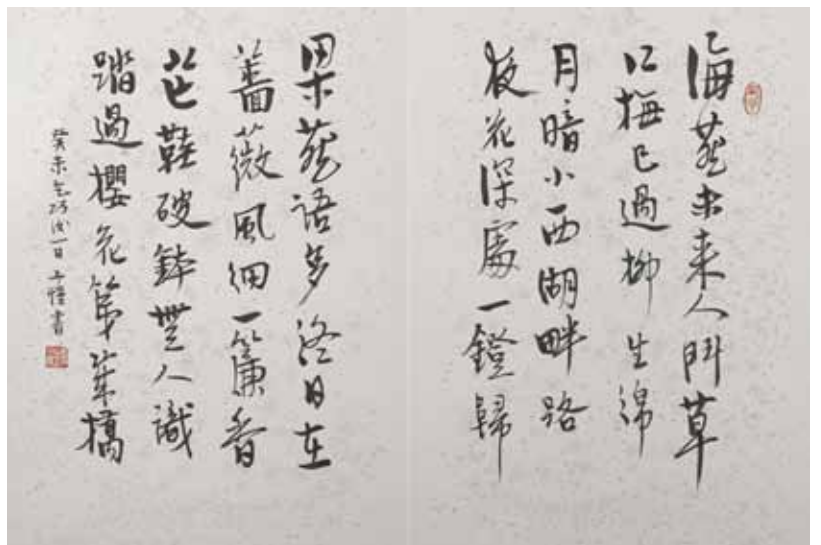 海燕未来人鬥草
江梅已過柳生綿
月暗小西湖畔路
夜花深處一鐙歸
梁燕語多終日在
薔薇風細一簾香
芒鞋破鉢無人識
踏過櫻花第幾橋
癸未乞巧後一日 書